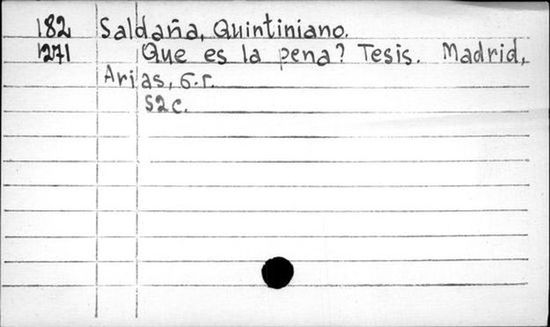 182 Saldaña, Quintiniano.
1271 Que es la pena? Tesis. Madrid,
Arias, G.r.
52c.